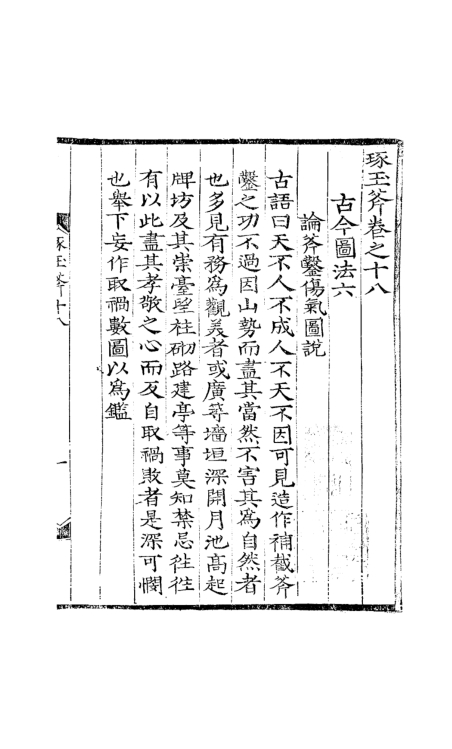 琢玉斧卷之十八
古今圖法六
論斧鑿傷氣圖說
古語曰天不人不成人不天不因可見造作補截斧
鑿之功不過因山勢而盡其當然不害其爲自然者
也多見有務爲觀美者或廣等墻垣深開月池高起
牌坊及其崇臺望柱砌路建亭等事莫知禁忌往往
有以此盡其孝敬之心而反自取禍敗者是深可憫
也舉下妄作取禍數圖以爲鑑
琢玉斧十八
一